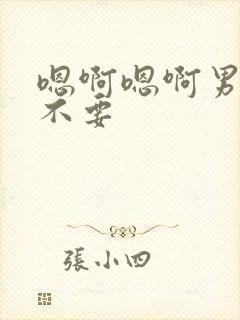 嗯啊嗯啊男
不要
張小四